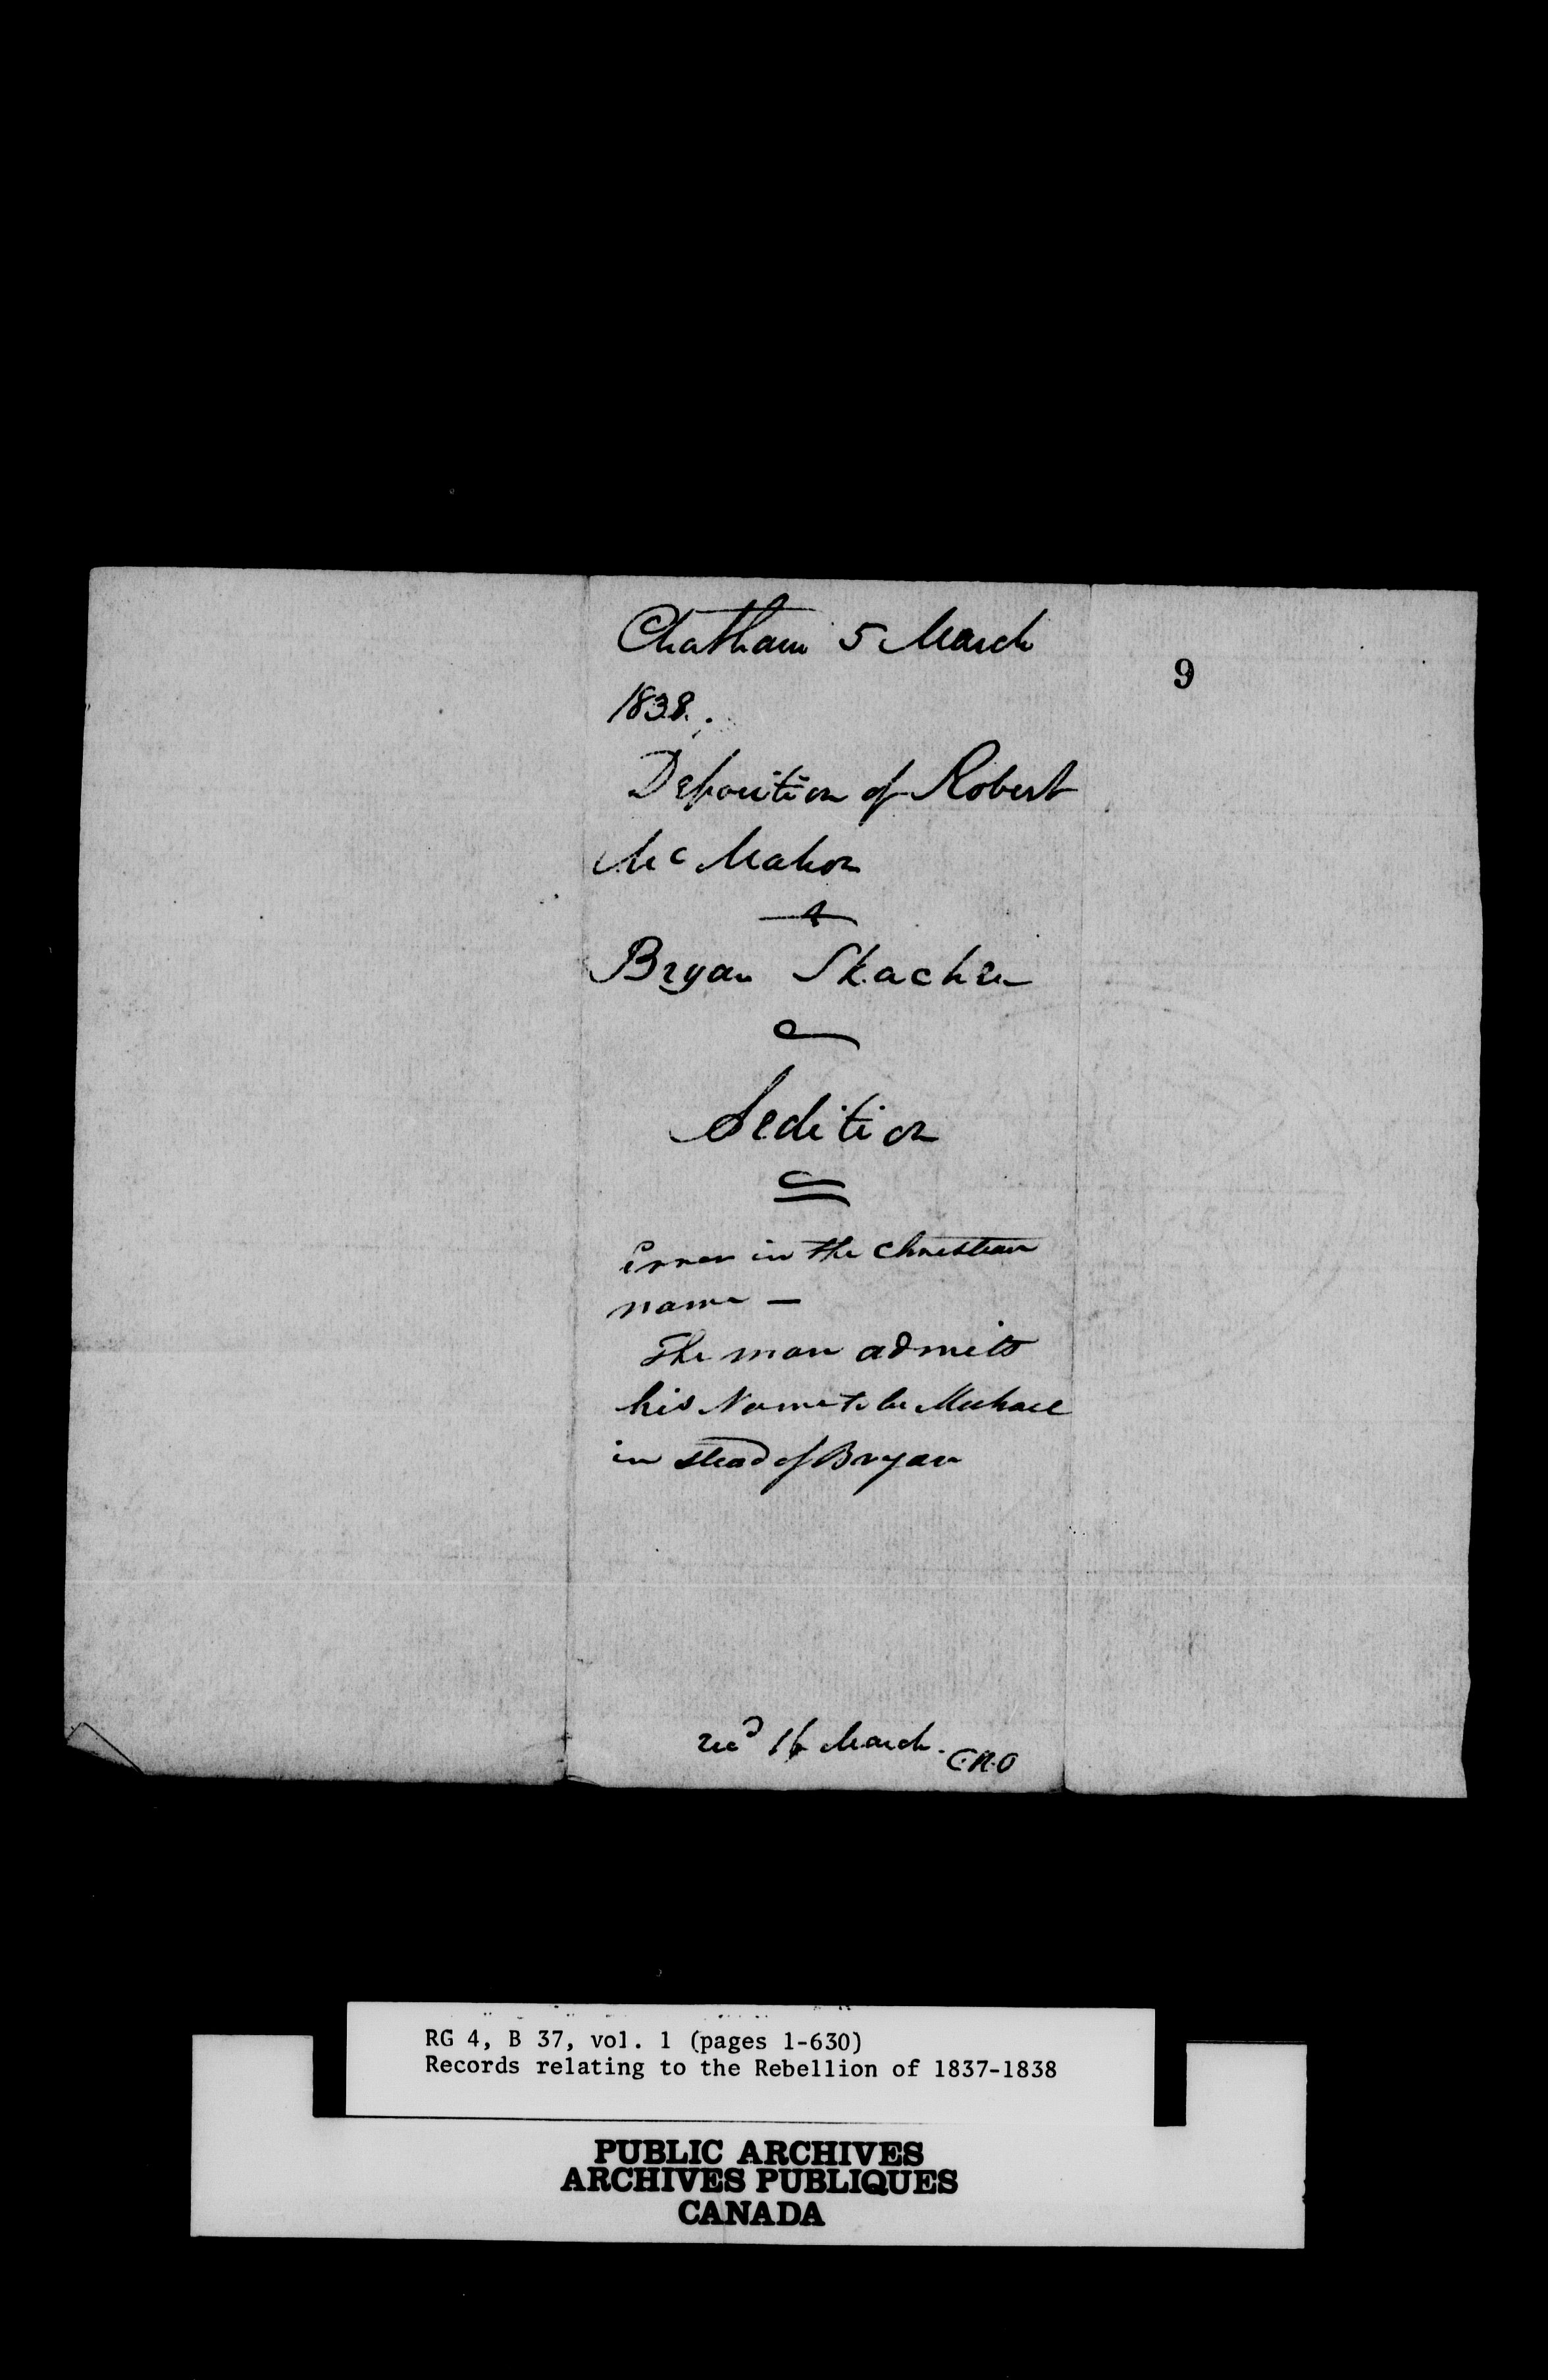 Chatham 5 March
9
1838.
Deposition of Robert
McMahon
Bryan Skachen
Sedition
Error in the Christian
name —
The man admits
his Name to be Michael
in stead of Bryan
recd 16 March. C.R.O
RG 4, B 37, vol. 1 (pages 1-630)
Records relating to the Rebellion of 1837-1838
PUBLIC ARCHIVES
ARCHIVES PUBLIQUES
CANADA